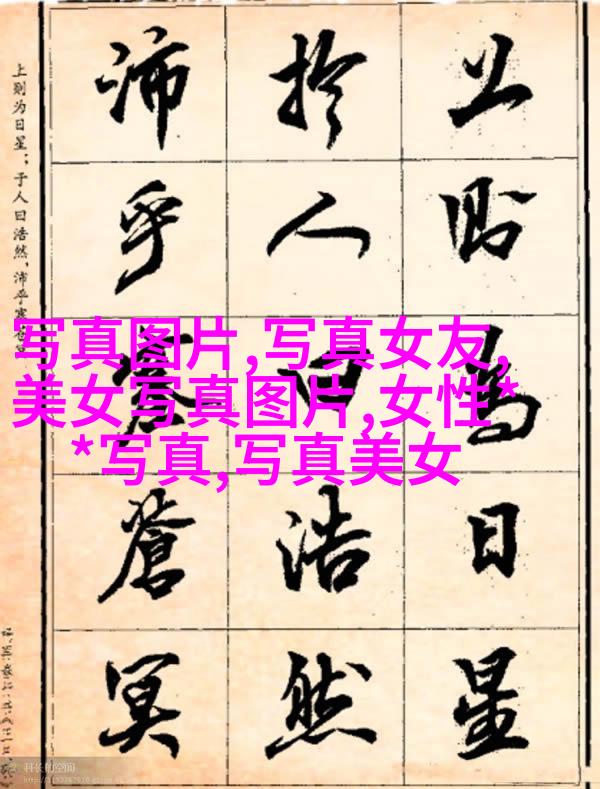 上則為日星
於人曰浩然
沛乎塞蒼冥
上则为日星;于人曰浩然,沛乎塞苍
写真图片,写真女友,
美女写真图片,女性*
*写真,写真美女
科长的空间